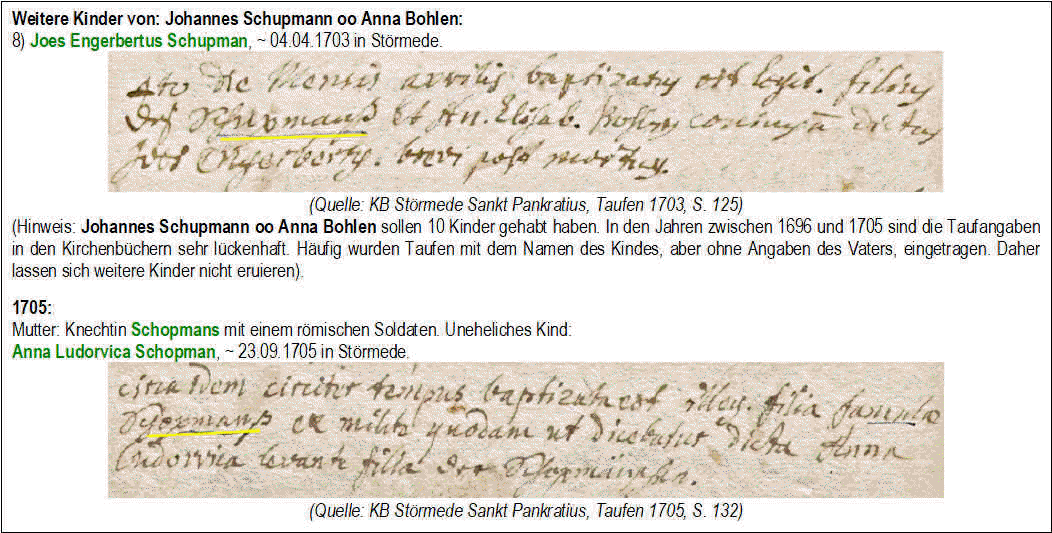 Weitere Kinder von: Johannes Schupmann oo Anna Bohlen:
8) Joes Engerbertus Schupman, ~ 04.04.1703 in Störmede.
4to die Mensis aprilis baptizatus est legit. filius
Schopmanß et An. Elisab. coniugum dictus
joes Engerbertus. brevi post mortuus.
(Quelle: KB Störmede Sankt Pankratius, Taufen 1703, S. 125)
(Hinweis: Johannes Schupmann oo Anna Bohlen sollen 10 Kinder gehabt haben. In den Jahren zwischen 1696 und 1705 sind die Taufangaben
in den Kirchenbüchern sehr lückenhaft. Häufig wurden Taufen mit dem Namen des Kindes, aber ohne Angaben des Vaters, eingetragen. Daher
lassen sich weitere Kinder nicht eruieren).
1705:
Mutter: Knechtin Schopmans mit einem römischen Soldaten. Uneheliches Kind:
Anna Ludorvica Schopman, ~ 23.09.1705 in Störmede.
circa idem circiter tempus baptizata est illeg. filia famulae
Schopmanß ex milite quodam ut dicebatur dicta Anna
Ludorvica levante filia
(Quelle: KB Störmede Sankt Pankratius, Taufen 1705, S. 132)